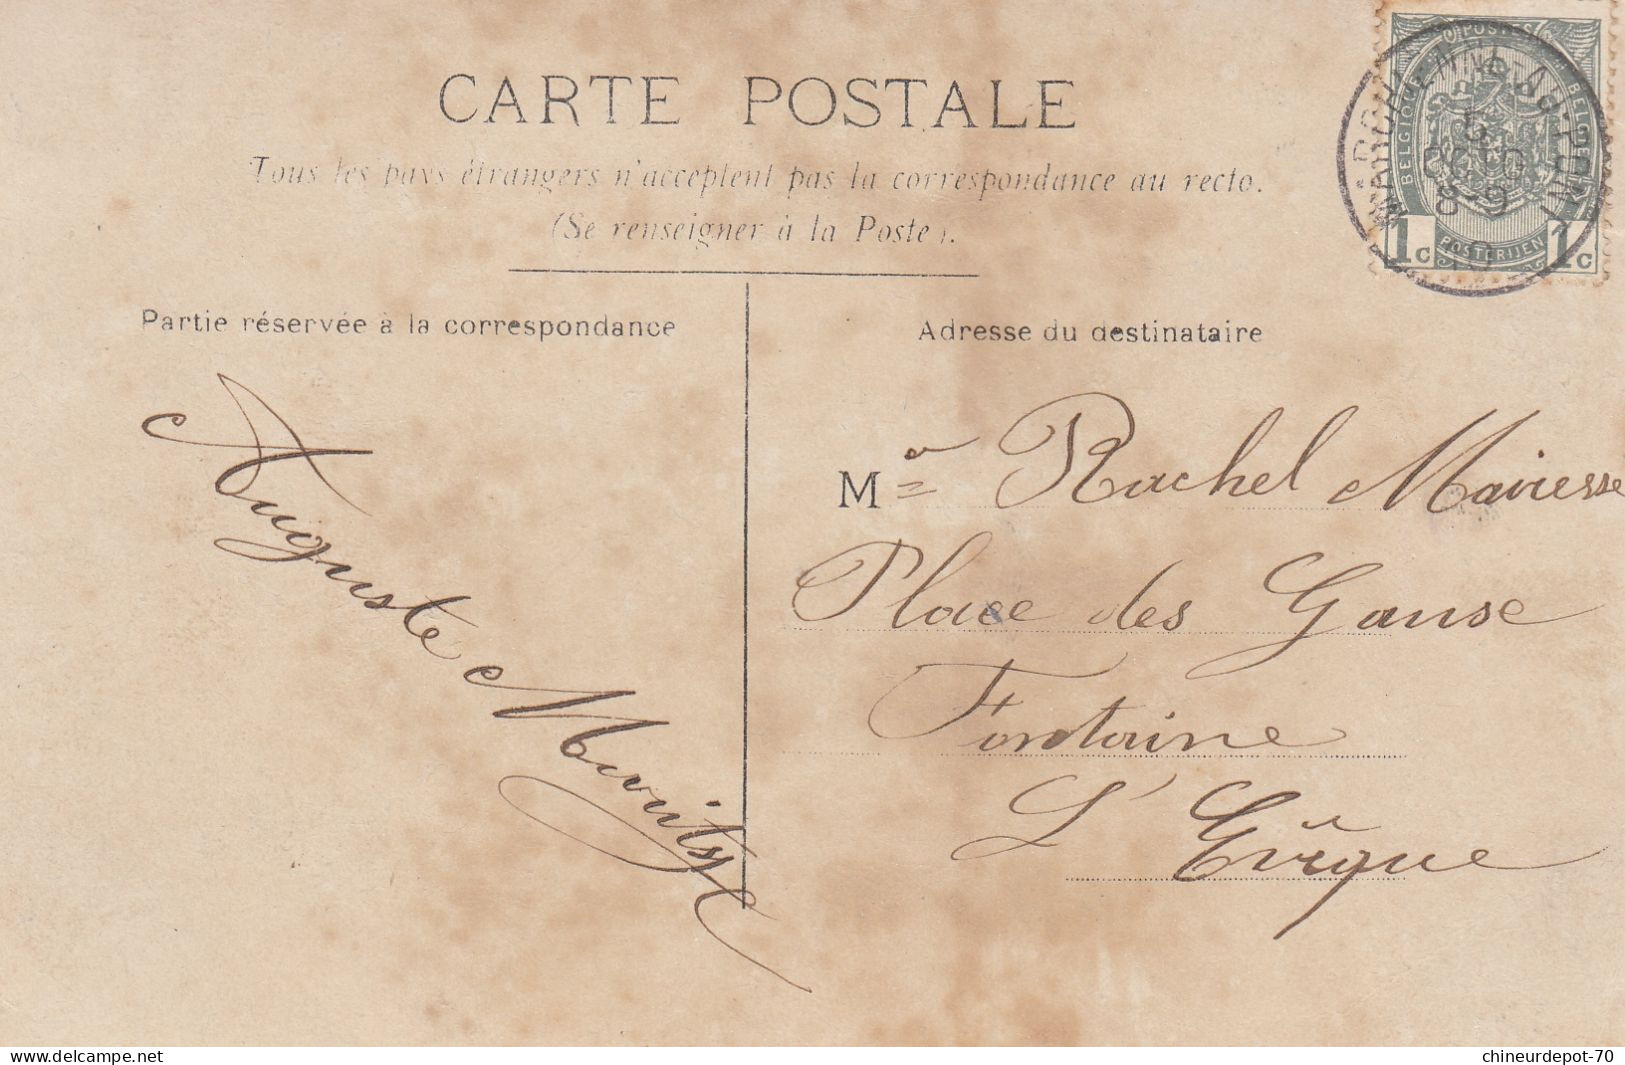 CARTE POSTALE
Tous les pays étrangers n'acceptent pas la correspondance au recto.
(Se renseigner à la Poste).
POSTES
BELGIQUE
BELGIE
MARCHIENNE-AU-PONT
1c POSTERIJEN 1c
Partie réservée à la correspondance
Adresse du destinataire
Auguste
M Rachel Mairesse
Place des Ganse
Fontaine
L'Evêque
chineurdepot-70
https://www.delcampe.net